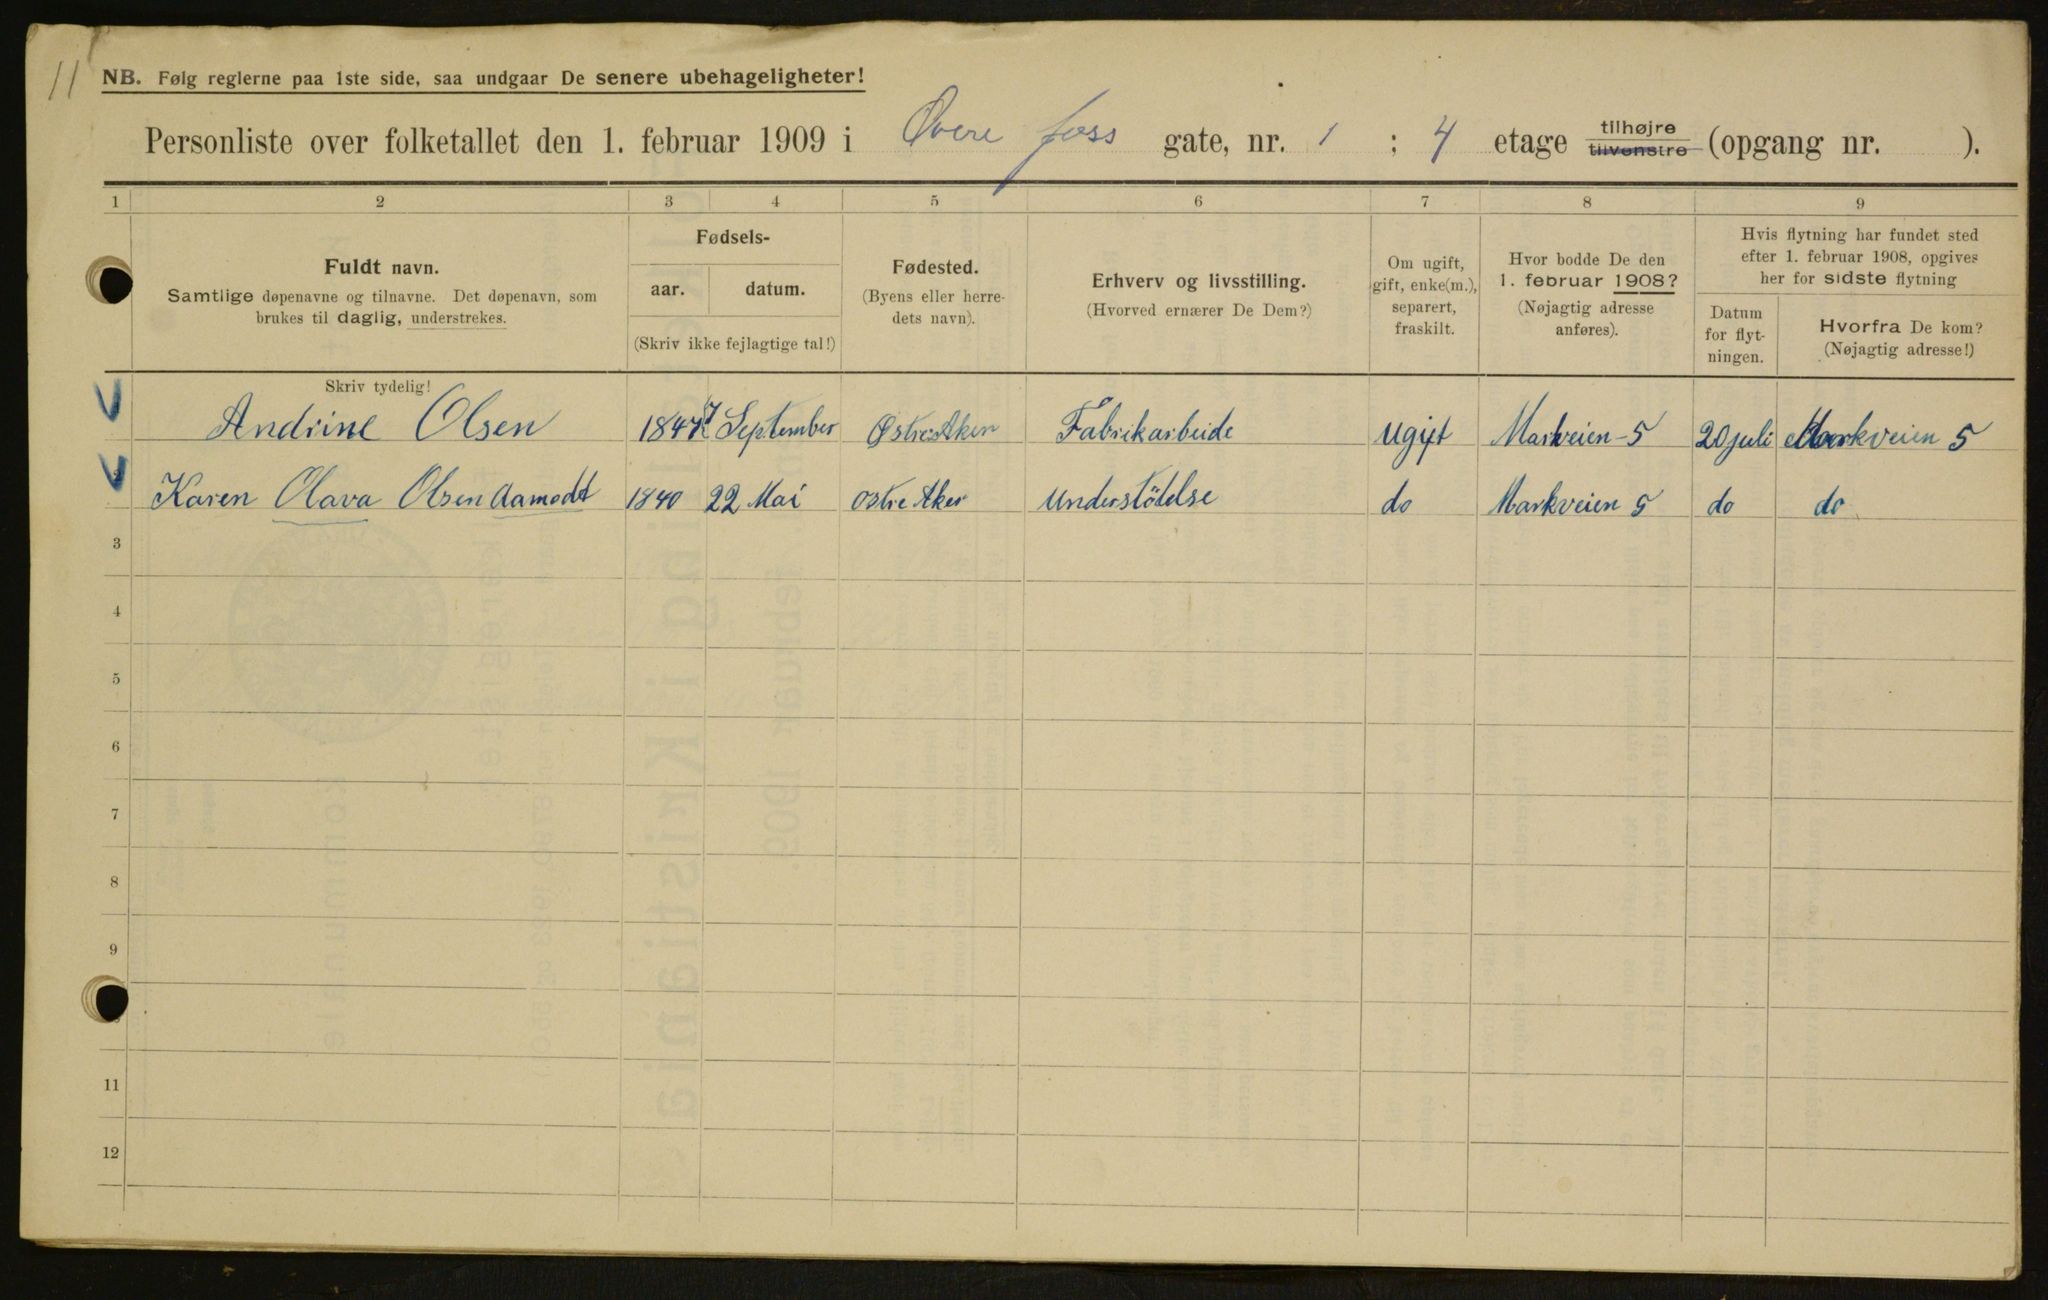 11
NB. Følg reglerne paa 1ste side, saa undgaar De senere ubehageligheter!
Personliste over folketallet den 1. februar 1909 i Øvere foss gate, nr. 1 ; 4 etage tilhøjre tilvenstre (opgang nr. ).
1 2 3 4 5 6 7 8 9
Fuldt navn.
Samtlige døpenavne og tilnavne. Det døpenavn, som
brukes til daglig, understrekes.
Skriv tydelig!
Fødsels-
aar. datum.
(Skriv ikke fejlagtige tal!)
Fødested.
(Byens eller herre-
dets navn).
Erhverv og livsstilling.
(Hvorved ernærer De Dem?)
Om ugift,
gift, enke(m.),
separert,
fraskilt.
Hvor bodde De den
1. februar 1908?
(Nøjagtig adresse
anføres).
Hvis flytning har fundet sted
efter 1. februar 1908, opgives
her for sidste flytning
Datum
for flyt-
ningen.
Hvorfra De kom?
(Nøjagtig adresse!)
Andrine Olsen 1847 7 September Østre Aken Fabrikarbeide ugift Markveien-5 20 juli Markveien 5
2 Karen Olava Olsen Aamodt 1840 22 Mai ostre Aker understödelse do Markveien 5 do do
3
4
5
6
7
8
9
11
12